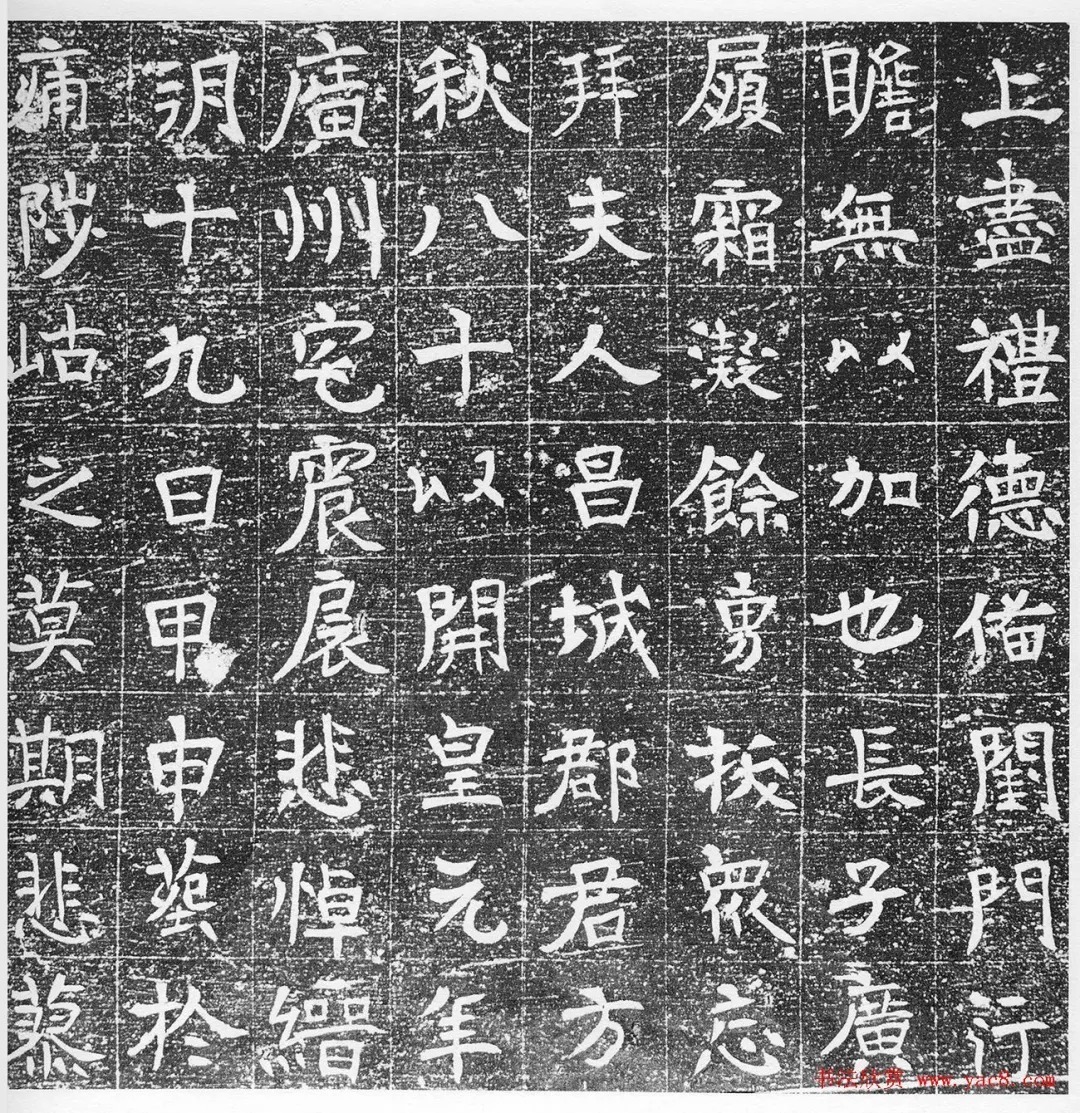 上盡禮德備閨門行
瞻無以加也長子廣
履霜凝餘勇拔衆忘
拜夫人昌城郡君方
秋八十以開皇元年
廣州宅震扆悲悼縉
朔十九日甲申葬於
痛陟岵之莫期悲蓼
书法欣赏 www.yac8.com